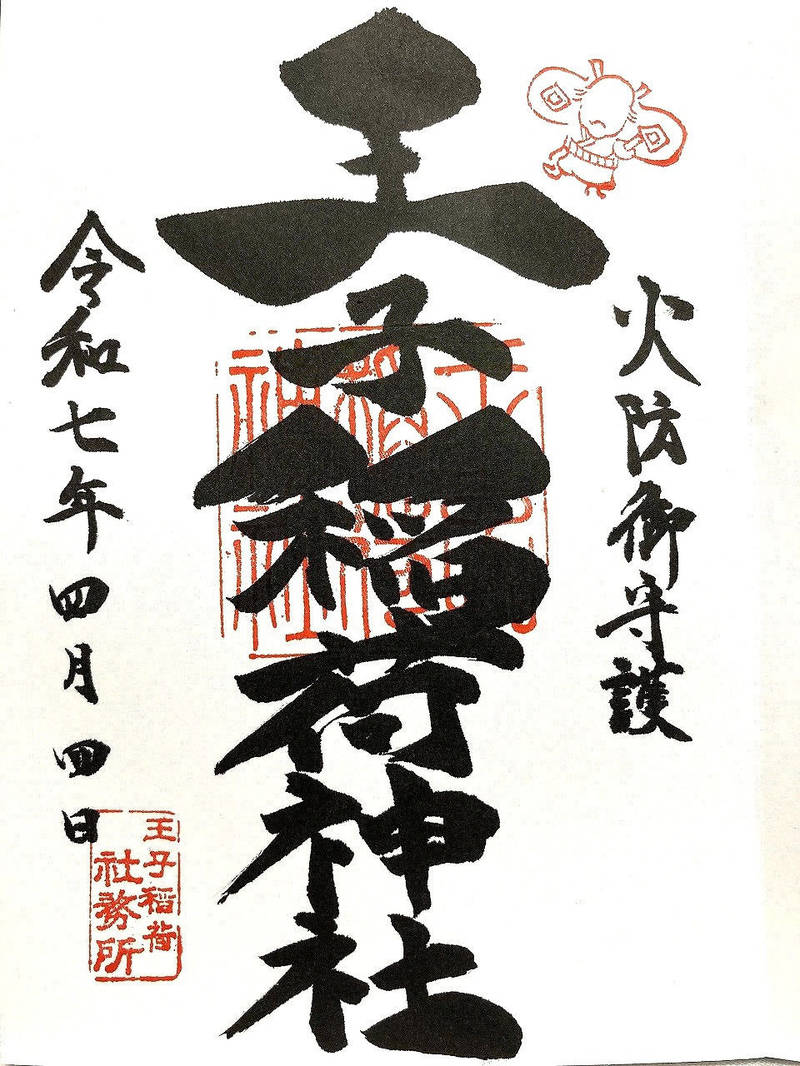 火防御守護
王子稲荷神社
令和七年四月四日
王子稲荷
社務所